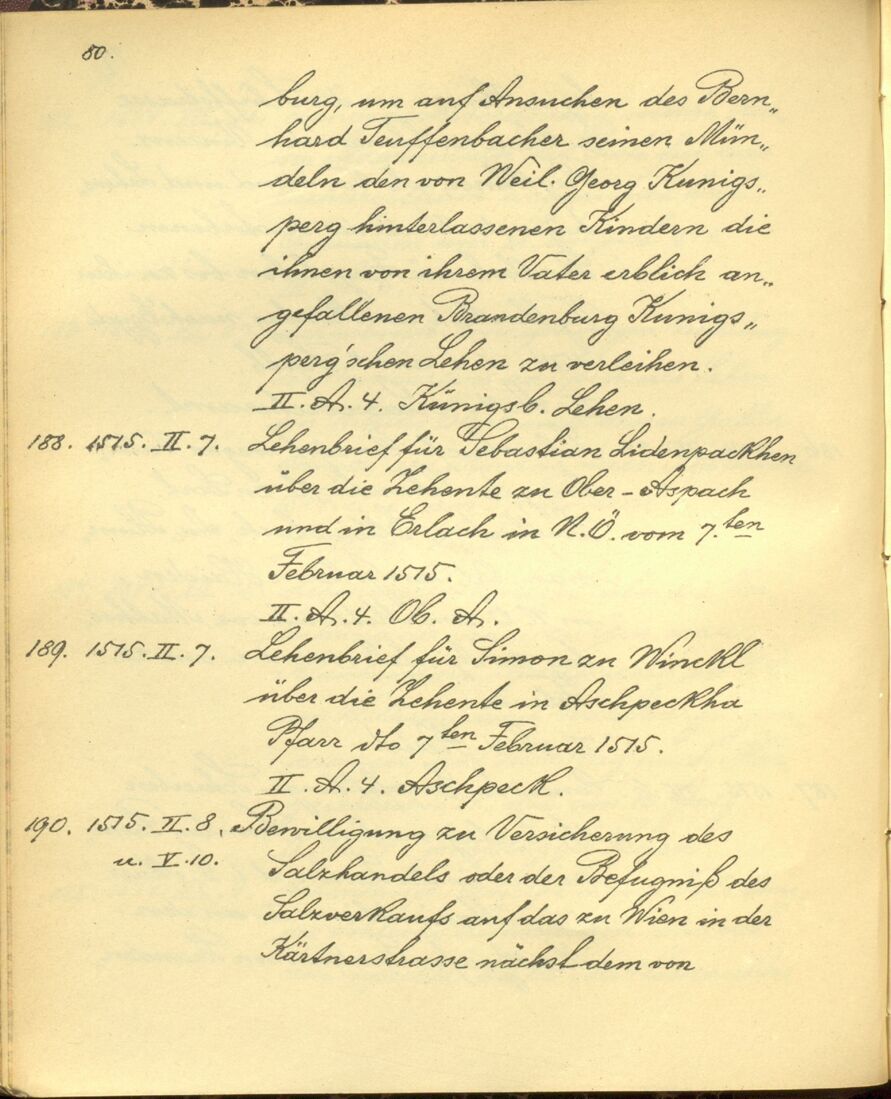 80.
burg, um auf Ansuchen des Bern„
hard Teuffenbacher seinen Mün„
deln den von Weil. Georg Kunigs„
perg hinterlassenen Kindern die
ihnen von ihrem Vater erblich an„
gefallenen Brandenburg Kunigs„
perg'schen Lehen zu verleihen.
II. A. 4. Künigsb. Lehen.
188. 1515. II. 7. Lehenbrief für Sebastian Lidenpackhen
über die Zehente zu Ober-Aspach
und in Erlach in N.Ö. vom 7.ten
Februar 1515.
II. A. 4. Ob. A.
189. 1515. II. 7. Lehenbrief für Simon zu Winckl
über die Zehente in Aschpeckha
Pfarr dto 7ten Februar 1515.
II. A. 4. Aschpeck.
190. 1515. II. 8. Bewilligung zu Versicherung des
u. V. 10. Salzhandels oder der Befugniß des
Salzverkaufs auf das zu Wien in der
Kärtnerstrasse nächst dem von